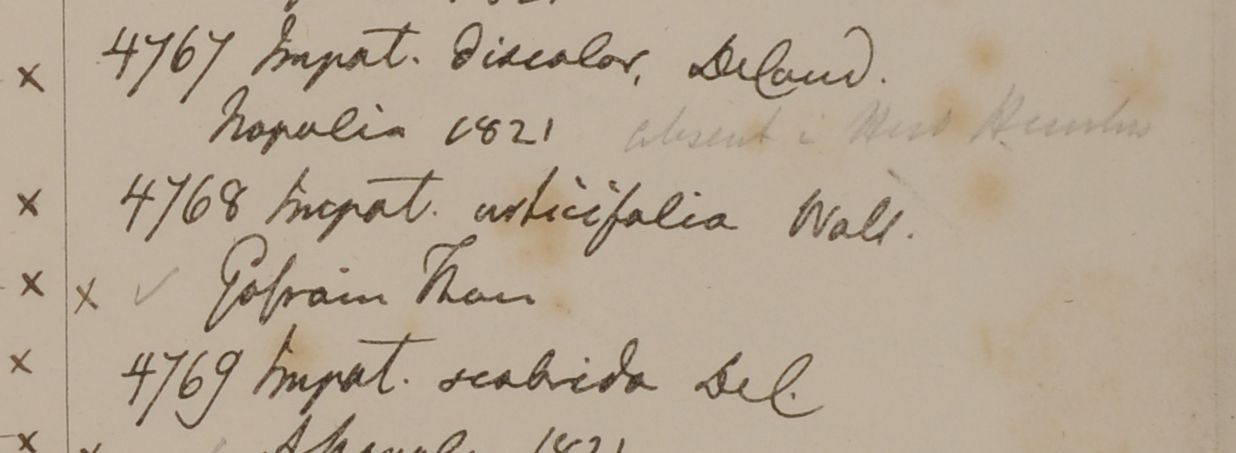 1821
× 4767 Impat. discolor, DeCand.
Napalia 1821 absent i Herb
× 4768 Impat. urticifolia Wall.
× × ✓ Gosain Than
× 4769 Impat. scabrida DeC.
× × 1821